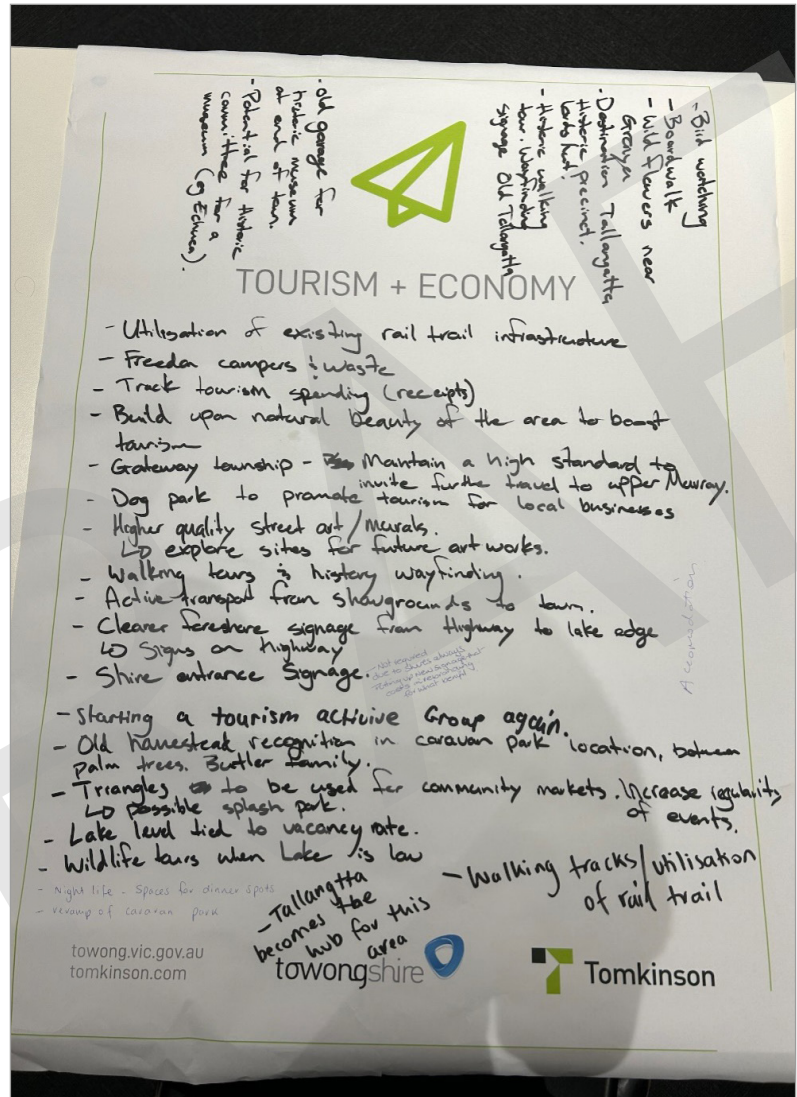 - Bird watching
- Boardwalk
- Wild flowers near
Granya
- Destination Tallangatta
Historic precinct.
Lords hut.
- Historic walking
tour. Wayfinding
signage Old Tallangatta
- old garage for
historic museum
at end of town.
- Potential for historic
committee for a
museum (eg Echuca).
TOURISM + ECONOMY
- Utilisation of existing rail trail infrastructure
- Freedom campers & waste
- Track tourism spending (receipts)
- Build upon natural beauty of the area to boost
tourism
- Gateway township - Maintain a high standard to
invite further travel to upper Murray.
- Dog park to promote tourism for local businesses
- Higher quality street art/murals.
↳ explore sites for future art works.
- Walking tours & history wayfinding.
- Active transport from showgrounds to town.
- Clearer foreshore signage from Highway to lake edge
↳ Signs on highway
- Shire entrance Signage.
- Not required
due to shires always
Accomodation
- Starting a tourism activive Group again.
- Old homestead recognition in caravan park location, between
palm trees. Butler family.
- Triangles to be used for community markets. Increase regularity
of events.
↳ possible splash park.
- Lake level tied to vacancy rate.
- Wildlife tours when Lake is low
- Night life - Spaces for dinner spots
- revamp of caravan park
- Tallangtta
becomes the
hub for this
area
- Walking tracks/utilisation
of rail trail
towong.vic.gov.au
tomkinson.com
towongshire
Tomkinson
DRAFT